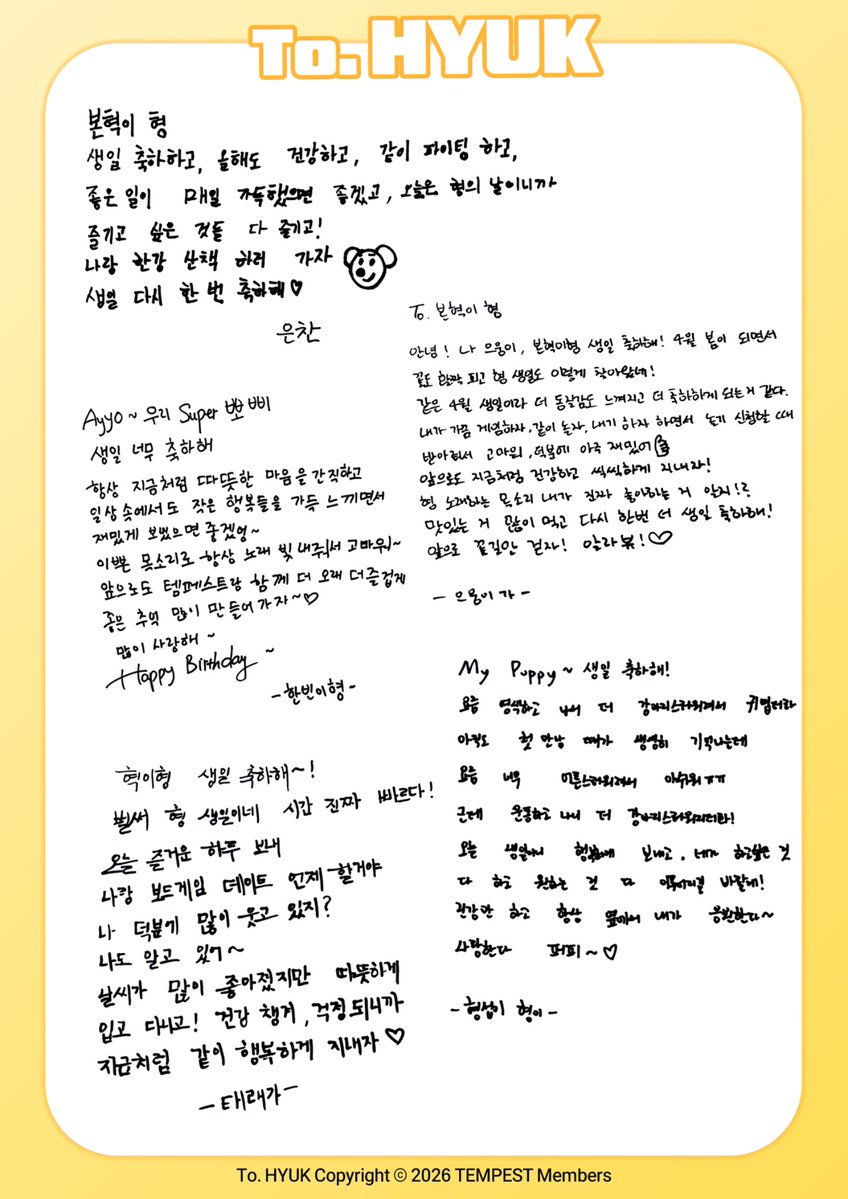 To. HYUK
본혁이 형
생일 축하하고, 올해도 건강하고, 같이 파이팅 하고,
좋은 일이 매일 가득했으면 좋겠고, 오늘은 형의 날이니까
즐기고 싶은 것들 다 즐기고!
나랑 한강 산책 하러 가자
생일 다시 한 번 축하해♡
은찬
To. 본혁이 형
안녕! 나 으뭉이, 본혁이형 생일 축하해! 4월 봄이 되면서
꽃도 활짝 피고 형 생일도 이렇게 찾아왔네!
같은 4월 생일이라 더 동질감도 느껴지고 더 축하하게 되는거 같다.
내가 가끔 게임하자, 같이 놀자, 내기 하자 하면서 놀기 신청할 때
받아줘서 고마워, 덕분에 아주 재밌어
앞으로도 지금처럼 건강하고 씩씩하게 지내자!
형 노래하는 목소리 내가 진짜 좋아하는 거 알지!?
맛있는 거 많이 먹고 다시 한번 더 생일 축하해!
앞으로 꽃길만 걷자! 알라뷰!♡
- 으뭉이가 -
Ayyo~ 우리 Super 뽀삐
생일 너무 축하해
항상 지금처럼 따뜻한 마음을 간직하고
일상 속에서도 작은 행복들을 가득 느끼면서
재밌게 보냈으면 좋겠엉~
이쁜 목소리로 항상 노래 빛내줘서 고마워~
앞으로도 템페스트랑 함께 더 오래 더 즐겁게
좋은 추억 많이 만들어가자~♡
많이 사랑해~
Happy Birthday ~
- 한빈이형 -
My Puppy~ 생일 축하해!
요즘 염색하고 나니 더 강아지스러워져서 귀엽더라
아직도 첫 만남 때가 생생히 기억나는데
요즘 너무 어른스러워져서 아쉬워ㅠㅠ
근데 운동하고 나니 더 강아지스러워지더라!
오늘 생일이니 행복하게 보내고, 네가 하고싶은 것
다 하고 원하는 것 다 이루어지길 바랄게!
건강만 하고 항상 옆에서 내가 응원한다~
사랑한다 퍼피~♡
- 형섭이 형이 -
혁이형 생일 축하해~!
벌써 형 생일이네 시간 진짜 빠르다!
오늘 즐거운 하루 보내
나랑 보드게임 데이트 언제 할거야
나 덕분에 많이 웃고 있지?
나도 알고 있어~
날씨가 많이 좋아졌지만 따뜻하게
입고 다니고! 건강 챙겨, 걱정되니까
지금처럼 같이 행복하게 지내자♡
- 태래가 -
To. HYUK Copyright © 2026 TEMPEST Members